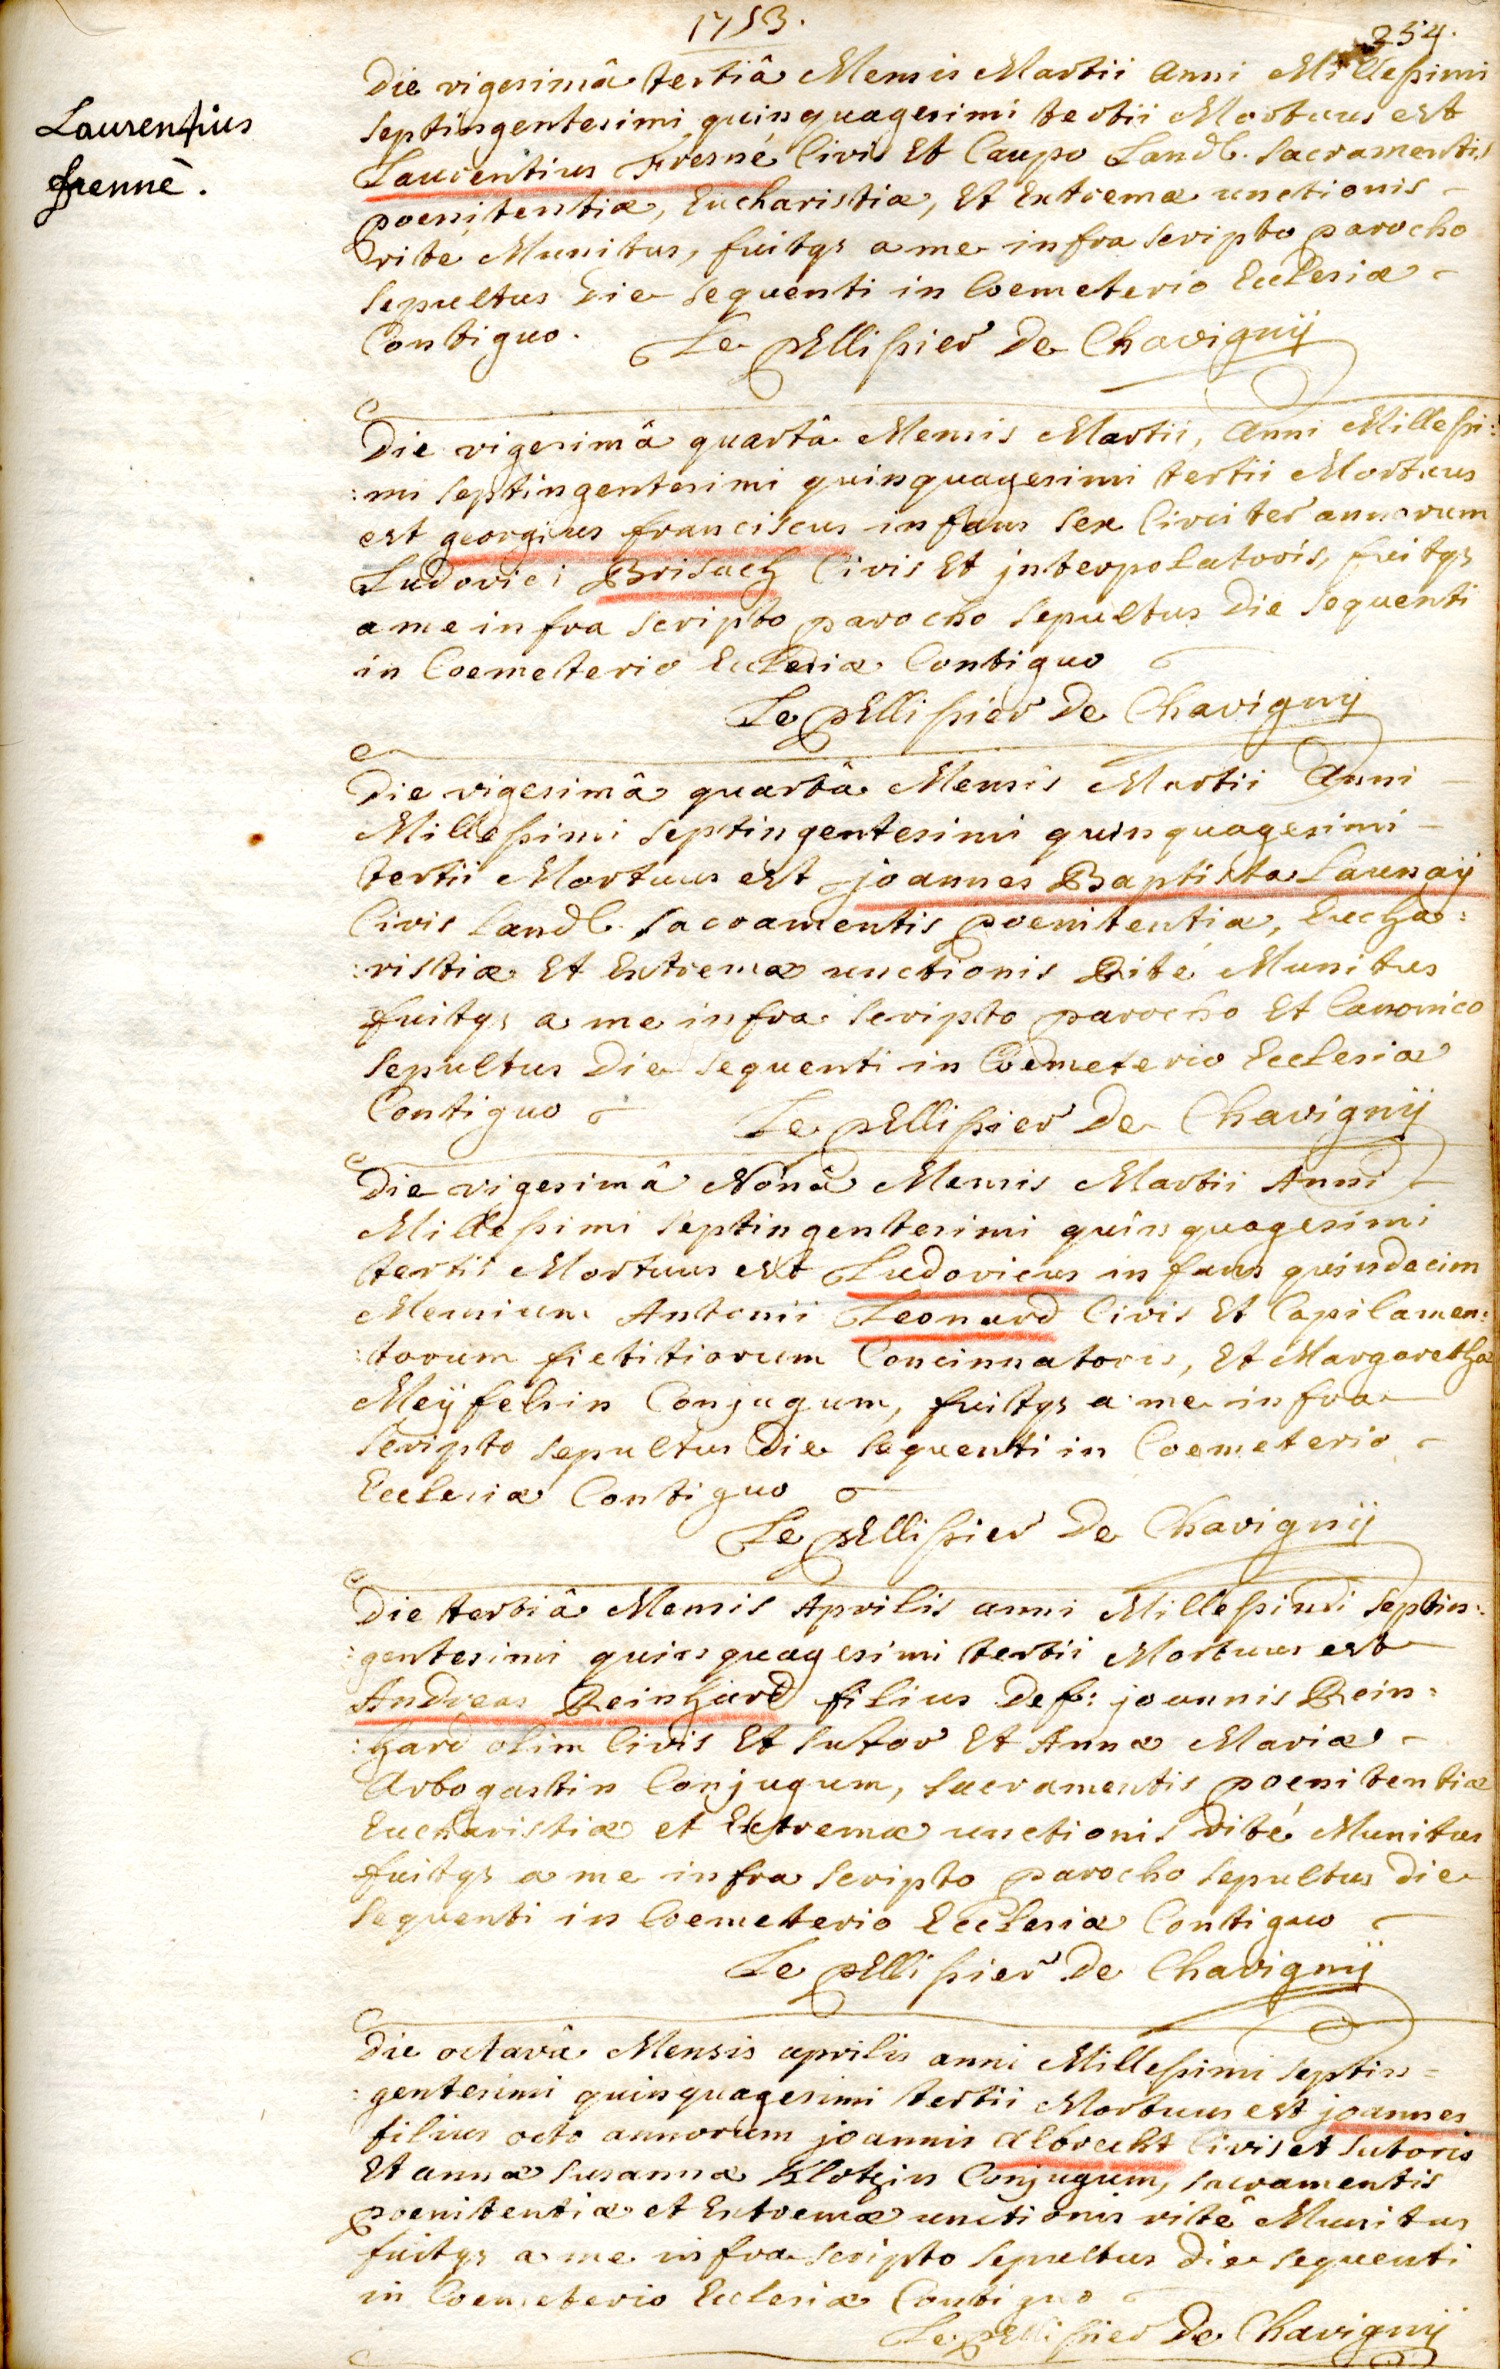 1753.
254.
Laurentius
frennè.
Die vigesimâ tertiâ Mensis Martii Anni Millesimi
septingentesimi quinquagesimi tertii Mortuus est
Laurentius Fresné Civis Et Caupo Land. sacramentis
poenitentiæ, Eucharistiæ, Et Extremæ unctionis
rité Munitus, fuitqs a me infra scripto parocho
sepultus Die sequenti in Coemeterio Ecclesiæ
Contiguo. Le pEllissier De Chavignij
Die vigesimâ quartâ Mensis Martii, Anni Millessi:
:mi septingentesimi quinquagesimi tertii Mortuus
est georgius franciscus infans sex Circiter annorum
Ludovici Brisach Civis Et jnterpolatoris, fuitqs
a me infra scripto parocho sepultus Die sequenti
in Coemeterio Ecclesiæ Contiguo
Le pEllissier De Chavignij
Die vigesimâ quartâ Mensis Martii Anni
Millessimi septingentesimi quinquagesimi
tertii Mortuus est joannes Baptista Launaÿ
Civis Land. sacramentis poenitentiæ, Eucha:
:ristiæ Et Extremæ unctionis Rité Munitus
fuitqs a me infra scripto parocho Et Canonico
sepultus Die sequenti in Coemeterio Ecclesiæ
Contiguo Le pEllissier De Chavignij
Die vigesimâ Nonâ Mensis Martii Anni
Millessimi septingentesimi quinquagesimi
tertii Mortuus est Ludovicus infans quindecim
Mensium Antonii Leonard Civis Et Capilamen:
:torum fictitiorum Concinnatoris, Et Margarethæ
Meÿfelsin Conjugum, fuitqs a me infra
scripto sepultus Die sequenti in Coemeterio
Ecclesiæ Contiguo
Le pEllissier De Chavignij
Die tertiâ Mensis Aprilis anni Millessimi septin:
:gentesimi quinquagesimi tertii Mortuus est
Andreas Reinhard filius Def: joannis Rein:
:hard olim Civis Et sutor Et Annæ Mariæ
Arbogastin Conjugum, sacramentis poenitentiæ
Eucharistiæ et Extremæ unctionis rité Munitus
fuitqs a me infra scripto parocho sepultus Die
sequenti in Coemeterio Ecclesiæ Contiguo
Le pEllissier De Chavignij
Die octavâ Mensis aprilis anni Millessimi septin=
:gentesimi quinquagesimi tertii Mortuus est joannes
filius octo annorum joannis Albrecht Civis et sutoris
Et annæ susannæ Klotzin Conjugum, sacramentis
poenitentiæ et Extremæ unctionis ritê Munitus
fuitqs a me infra scripto sepultus Die sequenti
in Coemeterio Ecclesiæ Contiguo
Le pEllissier De Chavignij